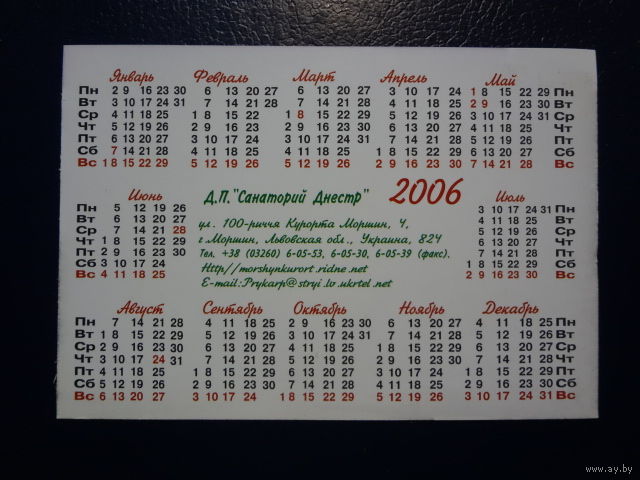 Январь Февраль Март Апрель Май
Пн 2 9 16 23 30 6 13 20 27 6 13 20 27 3 10 17 24 1 8 15 22 29 Пн
Вт 3 10 17 24 31 7 14 21 28 7 14 21 28 4 11 18 25 2 9 16 23 30 Вт
Ср 4 11 18 25 1 8 15 22 1 8 15 22 29 5 12 19 26 3 10 17 24 31 Ср
Чт 5 12 19 26 2 9 16 23 2 9 16 23 30 6 13 20 27 4 11 18 25 Чт
Пт 6 13 20 27 3 10 17 24 3 10 17 24 31 7 14 21 28 5 12 19 26 Пт
Сб 7 14 21 28 4 11 18 25 4 11 18 25 1 8 15 22 29 6 13 20 27 Сб
Вс 1 8 15 22 29 5 12 19 26 5 12 19 26 2 9 16 23 30 7 14 21 28 Вс
Июнь Д.П. "Санаторий Днестр" 2006 Июль
Пн 5 12 19 26 3 10 17 24 31 Пн
Вт 6 13 20 27 4 11 18 25 Вт
Ср 7 14 21 28 ул. 100-риччя Курорта Моршин, 4, 5 12 19 26 Ср
Чт 1 8 15 22 29 г.Моршин, Львовская обл., Украина, 824 6 13 20 27 Чт
Пт 2 9 16 23 30 Тел. +38 (03260) 6-05-53, 6-05-30, 6-05-39 (факс). 7 14 21 28 Пт
Сб 3 10 17 24 Http//morshynkurort.ridne.net 1 8 15 22 29 Сб
Вс 4 11 18 25 E-mail:Prykarp@stryi.lv.ukrtel.net 2 9 16 23 30 Вс
Август Сентябрь Октябрь Ноябрь Декабрь
Пн 7 14 21 28 4 11 18 25 2 9 16 23 30 6 13 20 27 4 11 18 25 Пн
Вт 1 8 15 22 29 5 12 19 26 3 10 17 24 31 7 14 21 28 5 12 19 26 Вт
Ср 2 9 16 23 30 6 13 20 27 4 11 18 25 1 8 15 22 29 6 13 20 27 Ср
Чт 3 10 17 24 31 7 14 21 28 5 12 19 26 2 9 16 23 30 7 14 21 28 Чт
Пт 4 11 18 25 1 8 15 22 29 6 13 20 27 3 10 17 24 1 8 15 22 29 Пт
Сб 5 12 19 26 2 9 16 23 30 7 14 21 28 4 11 18 25 2 9 16 23 30 Сб
Вс 6 13 20 27 3 10 17 24 1 8 15 22 29 5 12 19 26 3 10 17 24 31 Вс
www.ay.by